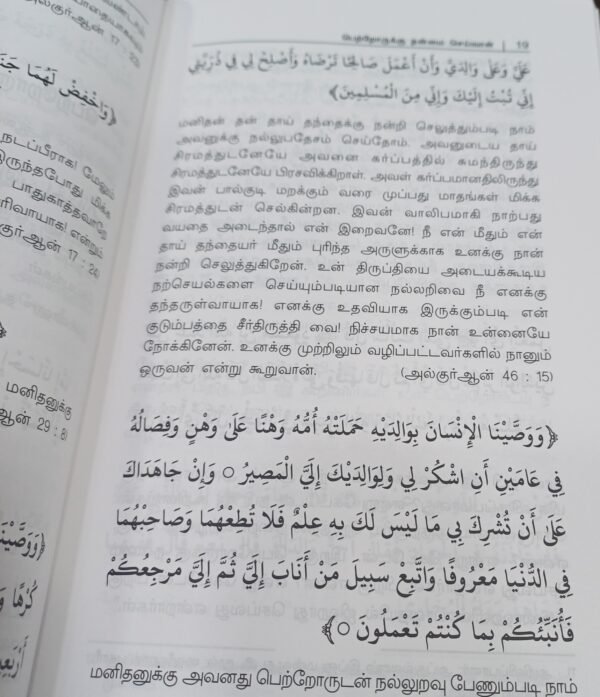 பெற்றோருக்கு நன்மை செய்வான் | 19
عَلَيَّ وَعَلَىٰ وَالِدَيَّ وَأَنْ أَعْمَلَ صَالِحًا تَرْضَاهُ وَأَصْلِحْ لِي فِي ذُرِّيَّتِي
إِنِّي تُبْتُ إِلَيْكَ وَإِنِّي مِنَ الْمُسْلِمِينَ﴾
மனிதன் தன் தாய் தந்தைக்கு நன்றி செலுத்தும்படி நாம்
அவனுக்கு நல்லுபதேசம் செய்தோம். அவனுடைய தாய்
சிரமத்துடனேயே அவனை கர்ப்பத்தில் சுமந்திருந்து
சிரமத்துடனேயே பிரசவிக்கிறாள். அவள் கர்ப்பமானதிலிருந்து
இவன் பால்குடி மறக்கும் வரை முப்பது மாதங்கள் மிக்க
சிரமத்துடன் செல்கின்றன. இவன் வாலிபமாகி நாற்பது
வயதை அடைந்தால் என் இறைவனே! நீ என் மீதும் என்
தாய் தந்தையர் மீதும் புரிந்த அருளுக்காக உனக்கு நான்
நன்றி செலுத்துகிறேன். உன் திருப்தியை அடையக்கூடிய
நற்செயல்களை செய்யும்படியான நல்லறிவை நீ எனக்கு
தந்தருள்வாயாக! எனக்கு உதவியாக இருக்கும்படி என்
குடும்பத்தை சீர்திருத்தி வை! நிச்சயமாக நான் உன்னையே
நோக்கினேன். உனக்கு முற்றிலும் வழிப்பட்டவர்களில் நானும்
ஒருவன் என்று கூறுவான். (அல்குர்ஆன் 46 : 15)
﴿وَوَصَّيْنَا الْإِنْسَانَ بِوَالِدَيْهِ حَمَلَتْهُ أُمُّهُ وَهْنًا عَلَىٰ وَهْنٍ وَفِصَالُهُ
فِي عَامَيْنِ أَنِ اشْكُرْ لِي وَلِوَالِدَيْكَ إِلَيَّ الْمَصِيرُ ○ وَإِنْ جَاهَدَاكَ
عَلَىٰ أَنْ تُشْرِكَ بِي مَا لَيْسَ لَكَ بِهِ عِلْمٌ فَلَا تُطِعْهُمَا وَصَاحِبْهُمَا
فِي الدُّنْيَا مَعْرُوفًا وَاتَّبِعْ سَبِيلَ مَنْ أَنَابَ إِلَيَّ ثُمَّ إِلَيَّ مَرْجِعُكُمْ
فَأُنَبِّئُكُمْ بِمَا كُنْتُمْ تَعْمَلُونَ ○﴾
மனிதனுக்கு அவனது பெற்றோருடன் நல்லுறவு பேணும்படி நாம்
ர்ஆன் 17 : 23
﴿وَاخْفِضْ لَهُمَا
நடப்பீராக! மேலும்
மிக்க
பாதுகாத்தவாறே
ரிவாயாக! என்றும்
ர்ஆன் 17 : 24
மனிதனுக்கு
ஆன் 29 : 8
﴿وَوَصَّيْنَا
كُرْهًا